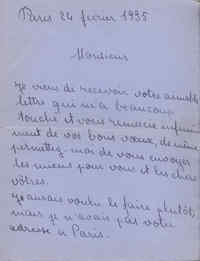 Paris 24 février 1935
Monsieur
Je viens de recevoir votre aimable
lettre qui m'a beaucoup
touché et vous remercie infini
ment de vos bons vœux, de même
permettez-moi de vous envoyer
les miens pour vous et les chers
vôtres.
J'aurais voulu le faire plutôt,
mais je n'avais pas votre
adresse à Paris.